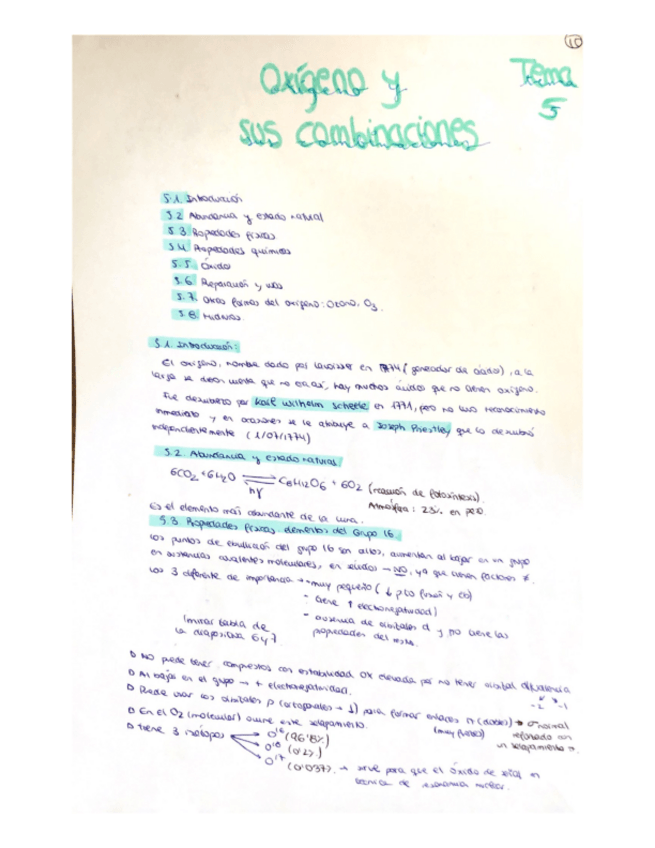 10
Oxígeno y
Tema
5
sus combinaciones
5.1. Introducción
5.2 Abundancia y estado natural
5.3. Propiedades físicas
5.4. Propiedades químicas
5.5. Óxidos
5.6. Preparación y usos
5.7. Otras formas del oxígeno: Ozono, O3.
5.8. Hidruros.
5.1. Introducción:
El oxígeno, nombre dado por Lavoisier en 1774 (generador de ácidos), a la
larga se dieron cuenta que no era así, hay muchos ácidos que no tienen oxígeno.
Fue descubierto por Karl Wilhelm Scheele en 1771, pero no tuvo reconocimiento
inmediato y en ocasiones se le atribuye a Joseph Priestley que lo descubrió
independientemente (1/07/1774)
5.2. Abundancia y estado natural
6CO2 + 6H2O ⇌ C6H12O6 + 6O2 (reacción de fotosíntesis).
hγ
Atmósfera: 23% en peso.
Es el elemento más abundante de la
5.3. Propiedades físicas elementos del Grupo 16
Los puntos de ebullición del grupo 16 son altos, aumentan al bajar en un grupo
en sustancias covalentes moleculares, en sólidos → NO, ya que tienen factores ≠.
Los 3 diferente de importancia → - muy pequeño (↓ pto fusión y eb)
- tiene ↑ electronegatividad)
- ausencia de orbitales d y no tiene las
propiedades del
(mirar tabla de
la diapositiva 6 y 7
No puede tener compuestos con estabilidad ox elevada por no tener orbital d
valencia
-2 -1
Al bajar en el grupo → + electronegatividad.
Puede usar los orbitales p (ortogonales → 1) para formar enlaces π (dobles) → σ normal
(muy fuertes) reforzado con
un solapamiento π.
En el O2 (molecular) ocurre este solapamiento.
Tiene 3 isótopos
O16 (96'8%)
O18 (0'2%)
O17 (0'037%) → sirve para que el óxido de en
técnica de resonancia nuclear.